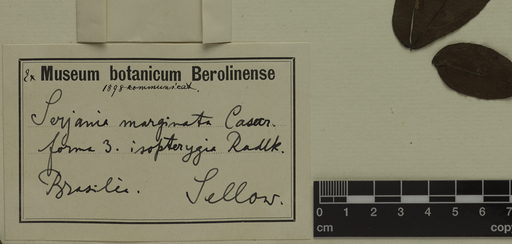 Ex Museum botanicum Berolinense
1898 communicat.
Serjania marginata Casar.
forma 3. isopterygia Radlk.
Brasilia. Sellow.
0 1 2 3 4 5 6 7
cm copy